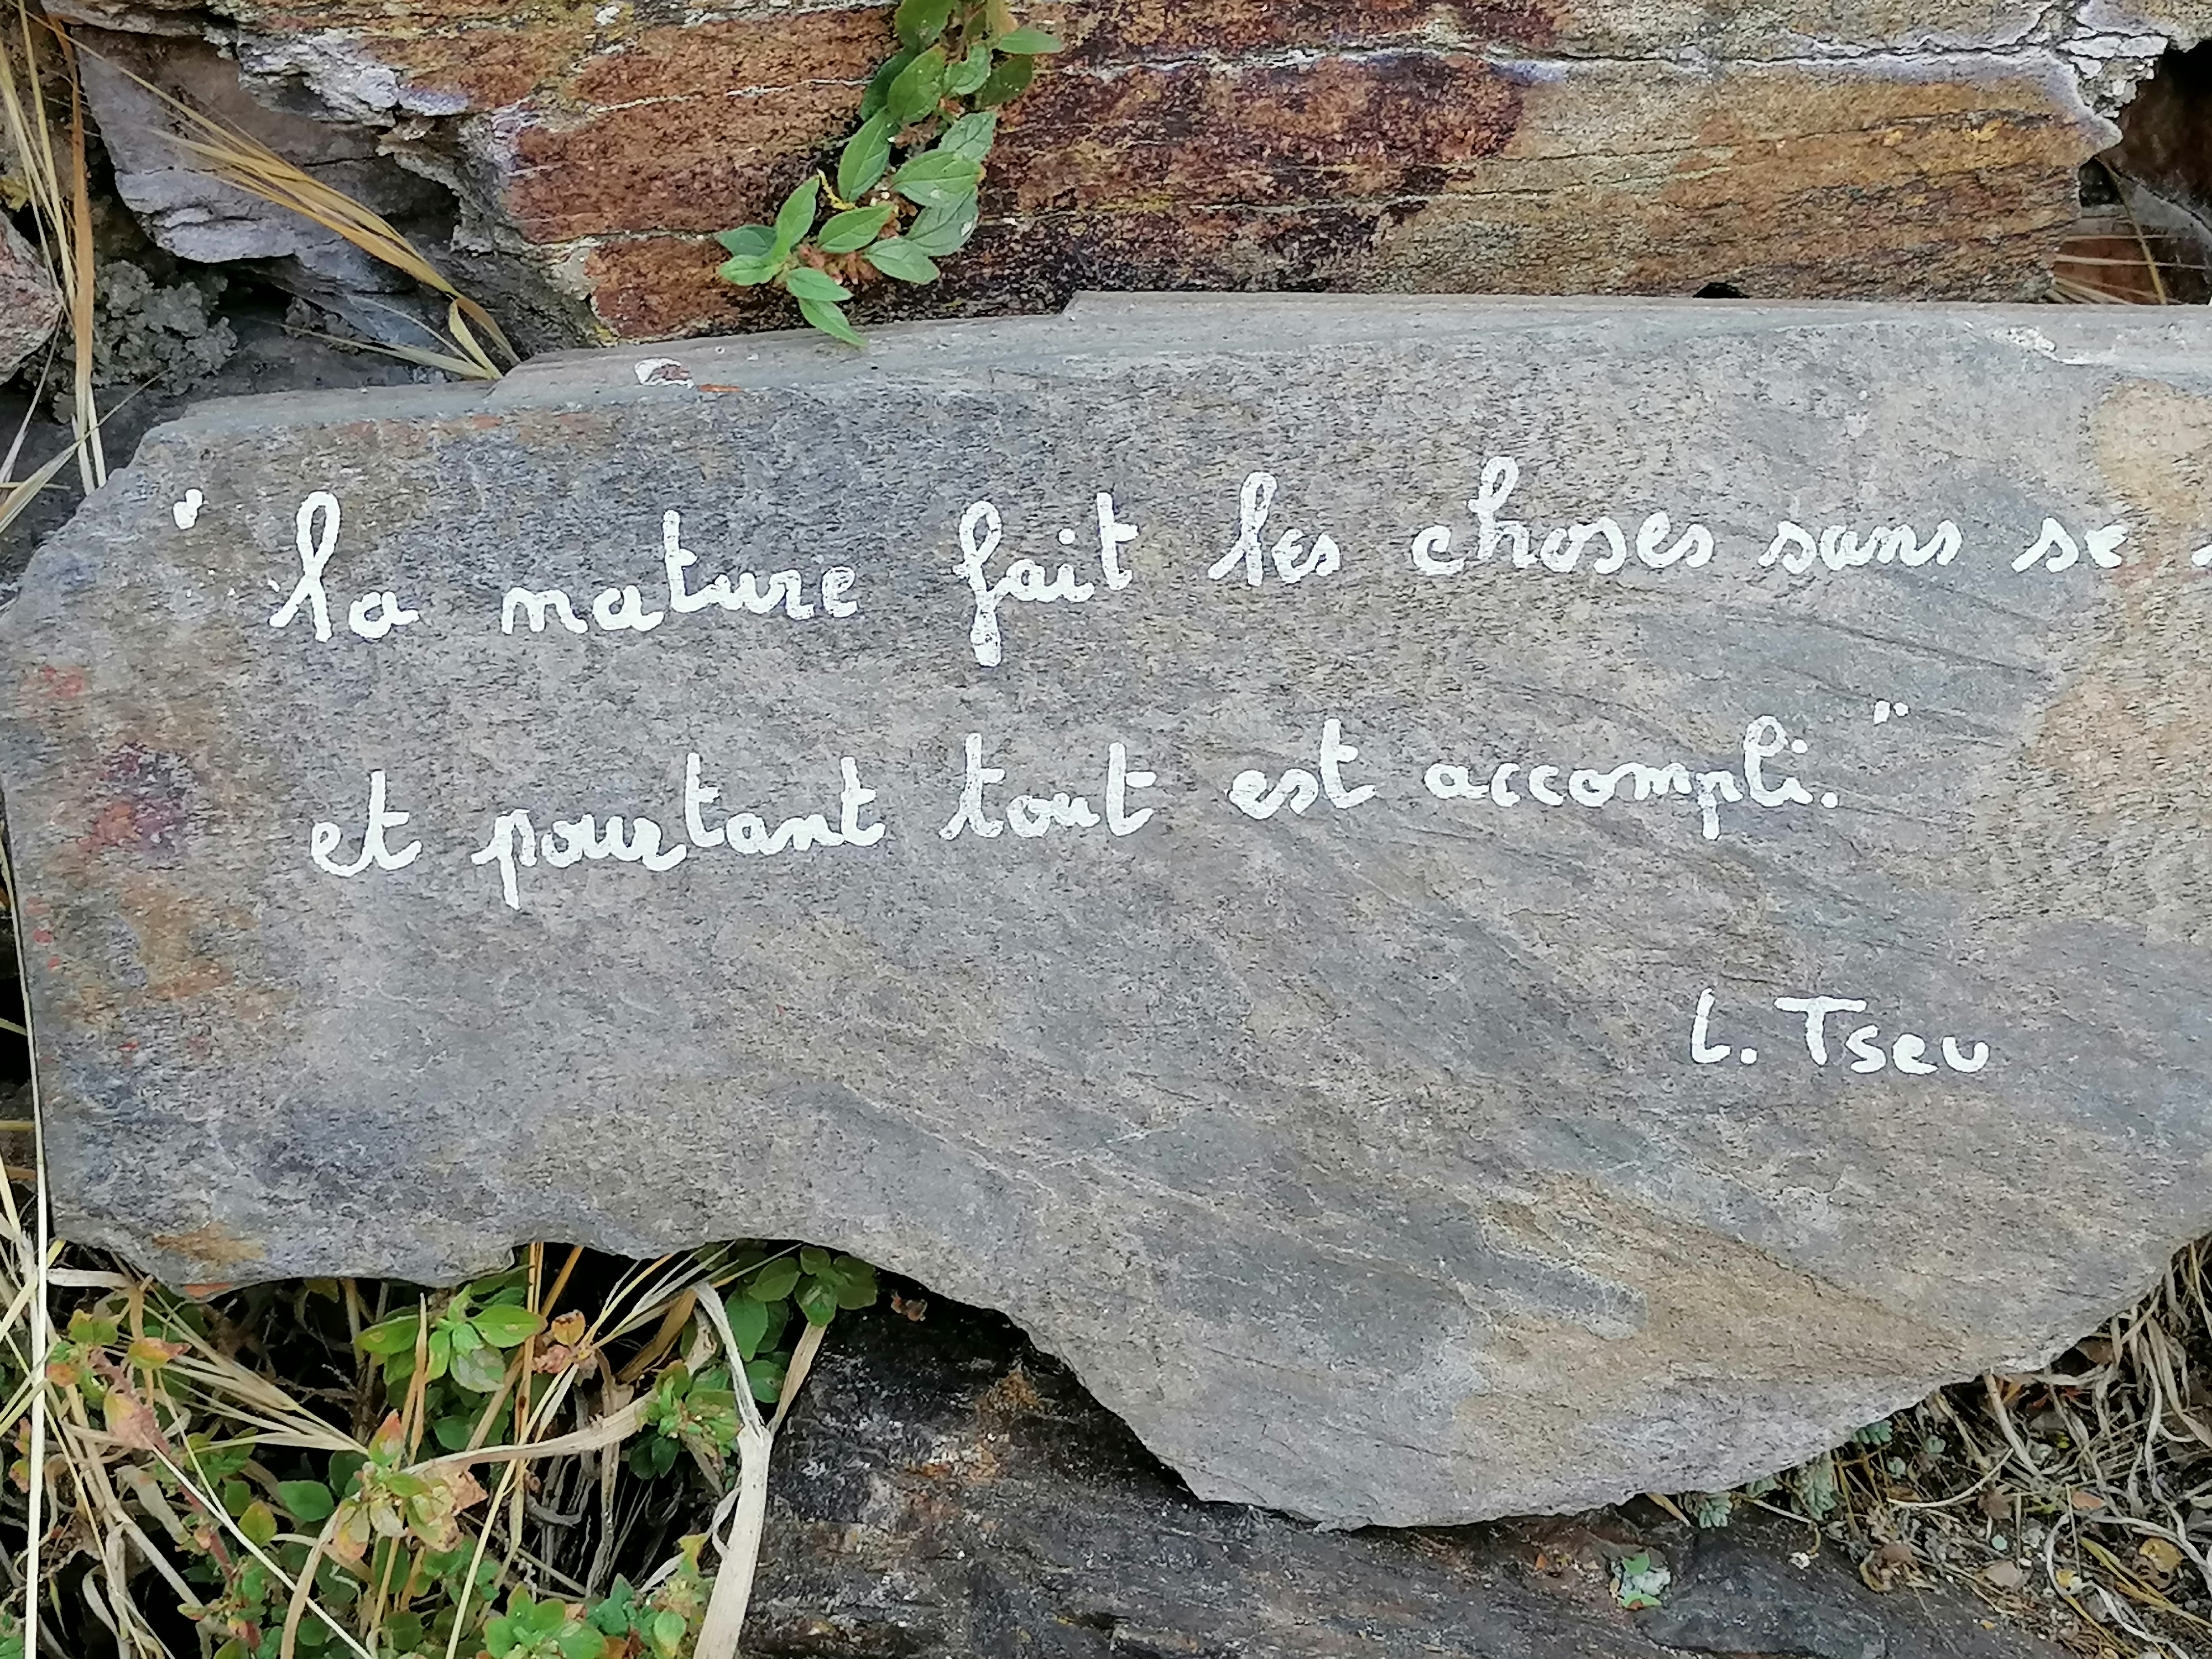 "la nature fait les choses sans se
et pourtant tout est accompli."
L. Tseu